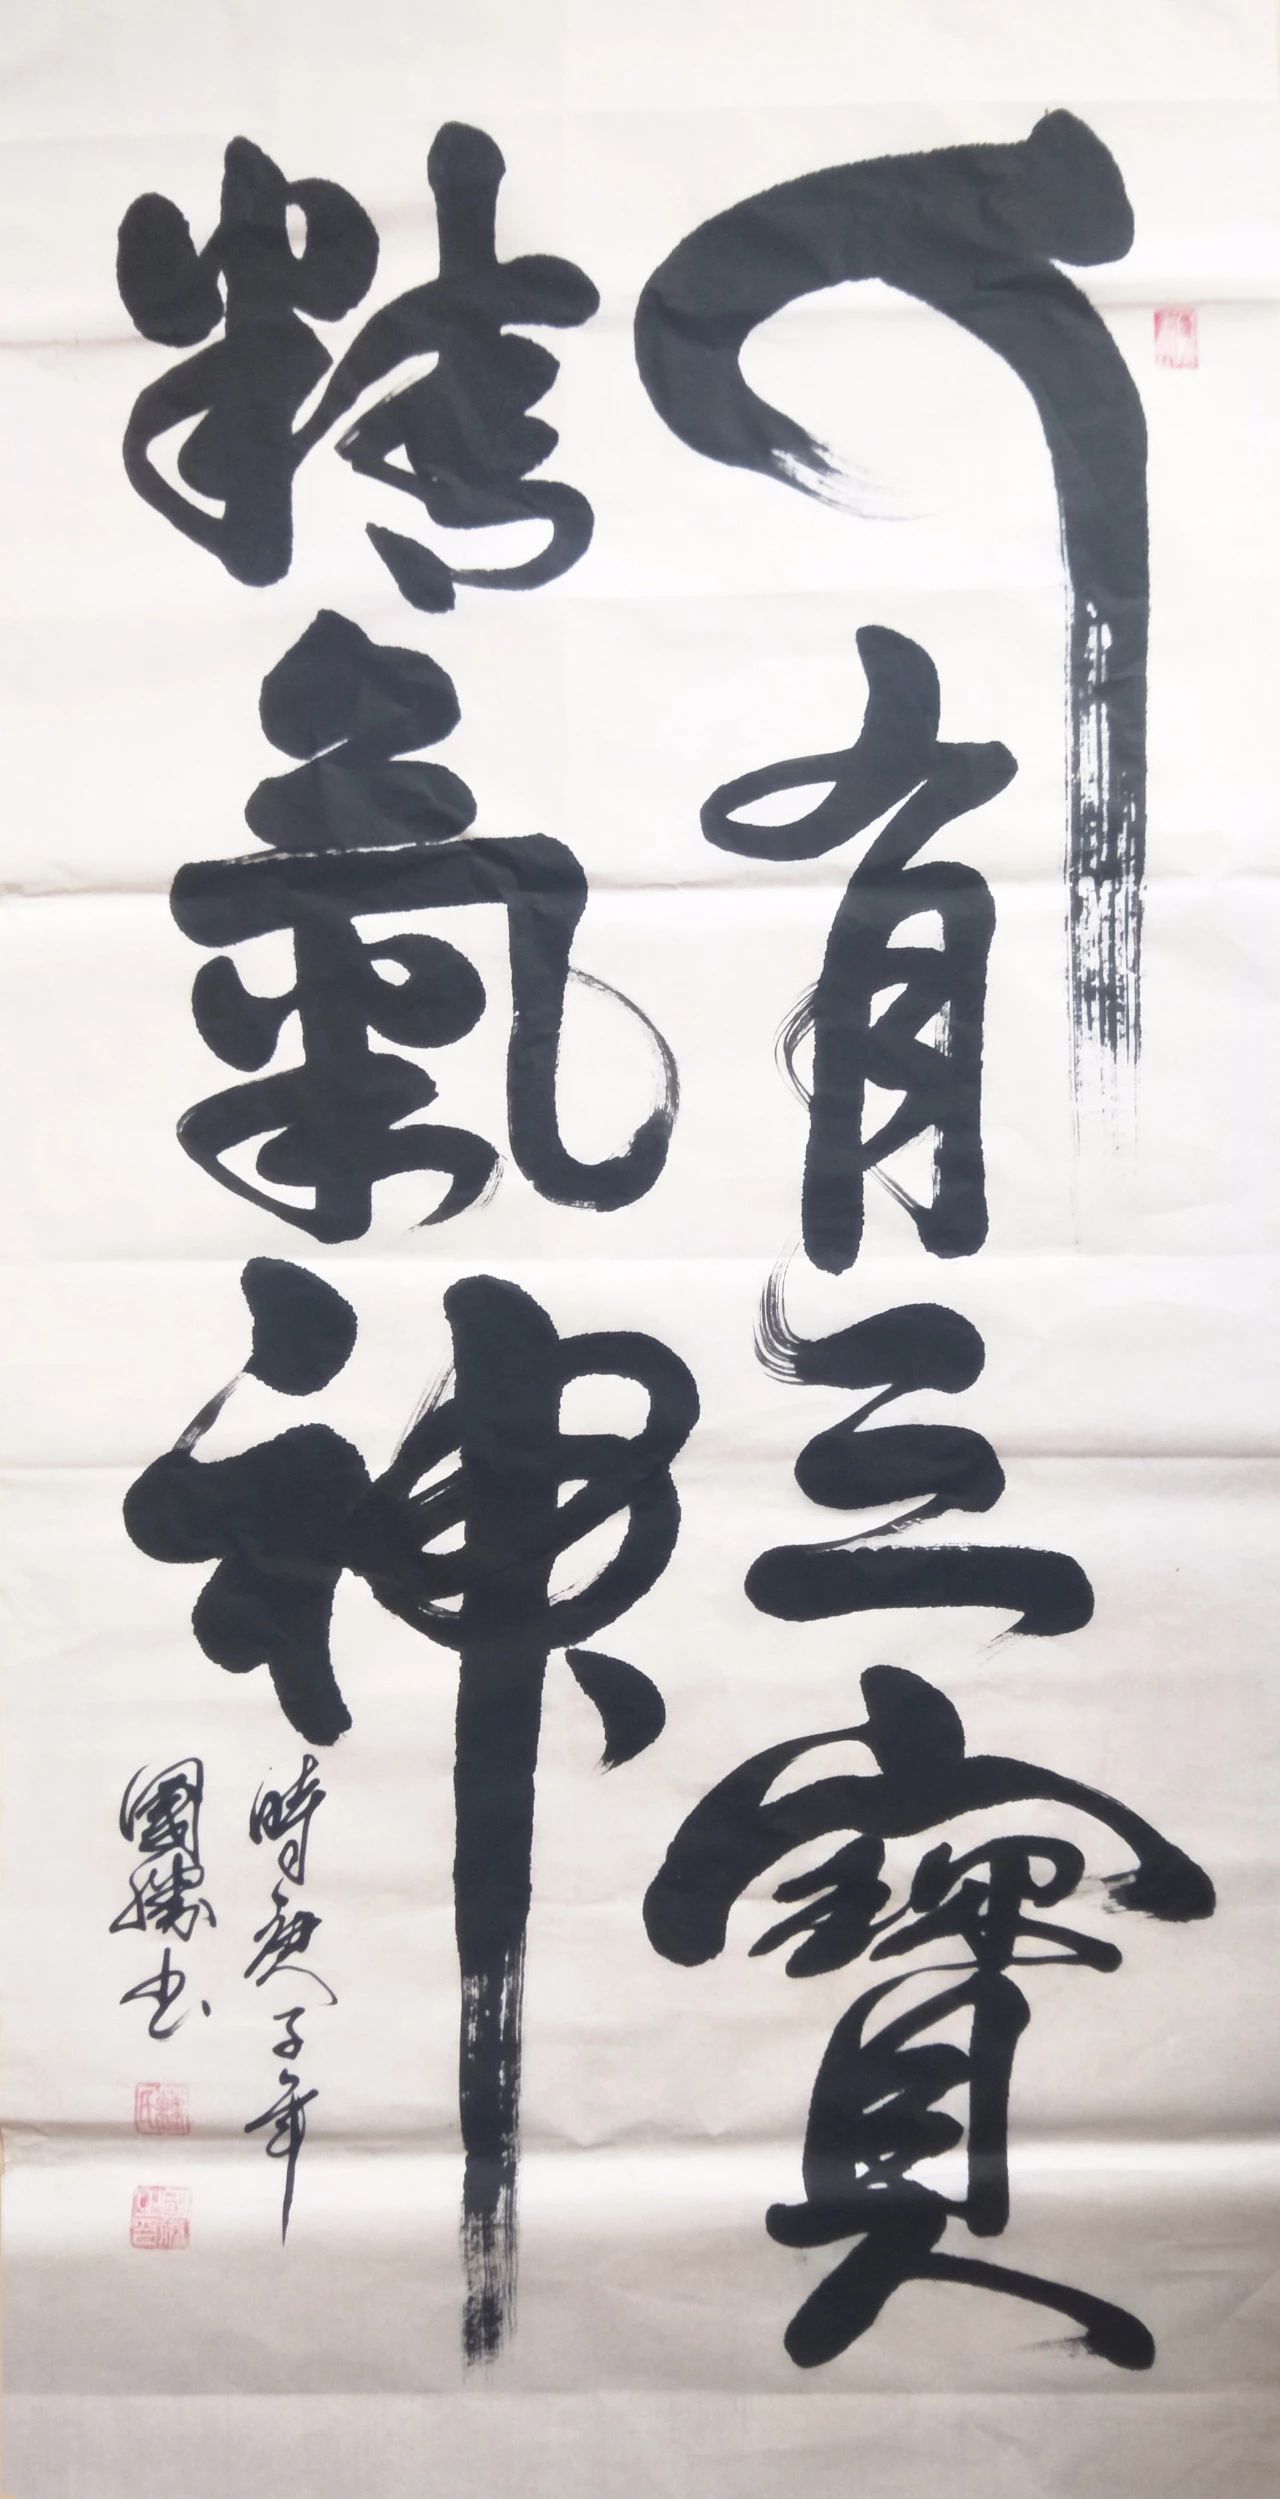 人有三寶
精氣神
時庚子年
國勝書